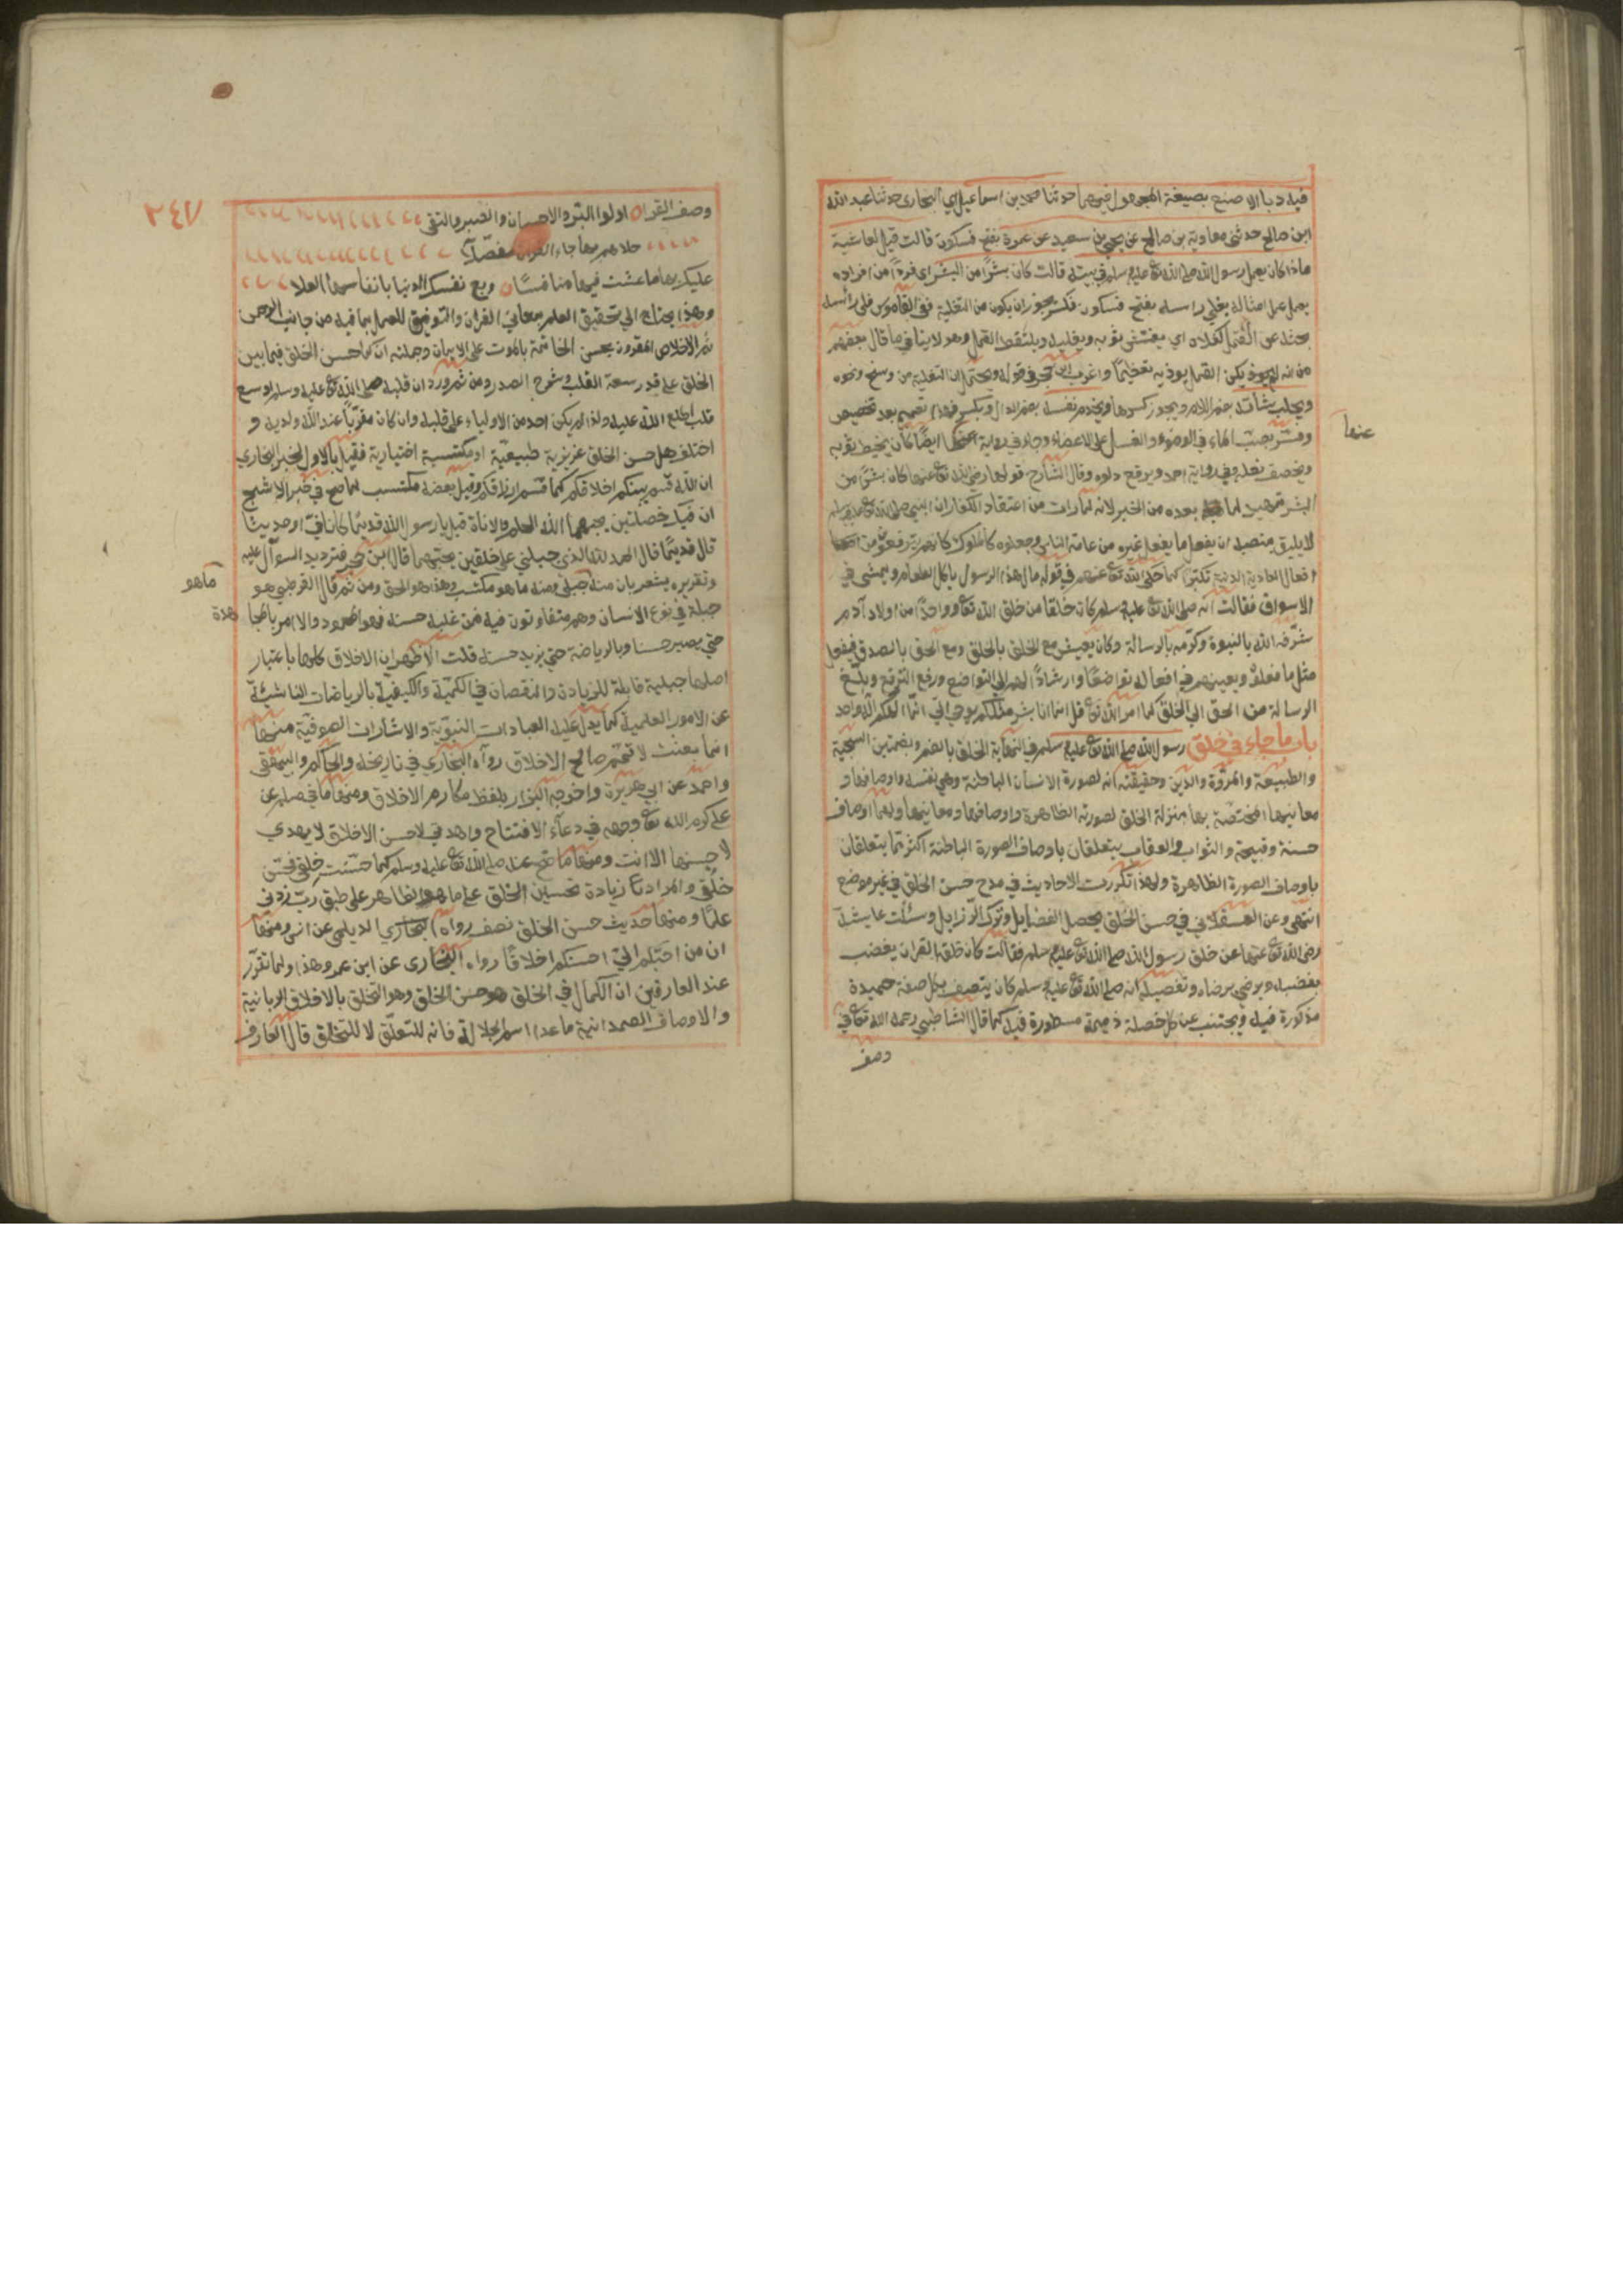 فيه دبا الا صنع بصيغة المجهول فيهما حدثنا محمد بن اسماعيل اي البخاري حدثنا عبد الله
ابن صالح حدثني معاوية بن صالح عن يحيى بن سعيد عن عمرة بفتح فسكون قالت قيل لعائشة
ماذا كان يعمل رسول الله صلى الله تع عليه وسلم في بيته قالت كان بشرًا من البشر اي فردًا من افراده
يعمل عمل امثاله يفلي راسه بفتح فسكون فكسر ويجوز ان يكون من التفلية ففي القاموس فلى رأسه
بحثه عن القمل كفلاه اي يفتش ثوبه ويقلبه ويلتقط القمل وهو لا ينافي ما قال بعضهم
من انه لم يكن القمل يوذيه تعظيمًا واغرب ابن حجر في قوله ويحتمل ان التفلية من وسخ ونحوه
ويحلب شاته بضم اللام ويجوز كسرها ويخدم نفسه بضم الدال ويكسر فهذا تعميم بعد تخصيص
وفسر بصب الماء في الوضوء والغسل على الاعضاء وجاء في رواية عنها ايضًا كان يخيط ثوبه
عنها
ويخصف نعله وفي رواية احمد ويرقع دلوه وقال الشارح قولها رضي الله تع عنها كان بشرًا من
البشر تمهيد لما بعده من الخبر لانه لما رات من اعتقاد الكفار ان النبي صلى الله تع عليه وسلم
لا يليق بمنصبه ان يفعل ما يفعل غيره من عامة الناس وجعلوه كالملوك كانهم يترفعون من
افعال العادية الدنية تكبرًا كما حكى الله تع عنهم في قوله مال هذا الرسول ياكل الطعام ويمشي في
الاسواق فقالت انه صلى الله تع عليه وسلم كان خلقا من خلق الله تع وواحدًا من اولاد آدم
شرّفه الله بالنبوة وكرّمه بالرسالة وكان يعيش مع الخلق بالخلق ومع الحق بالصدق فيفعل
مثل ما فعلوا ويعينهم في افعاله تواضعًا وارشادًا لهم الى التواضع ورفع الترفع وبلّغ
الرسالة من الحق الى الخلق كما امر الله تع قل انما انا بشر مثلكم يوحى الىّ انّما الهكم اله واحد
باب ما جاء في خلق رسول الله صلى الله تع عليه وسلم في النهاية الخلق بالضم وبضمتين السجية
والطبيعة والمروّة والدين وحقيقته انه لصورة الانسان الباطنة وهي نفسه واوصافها و
معانيها المختصة بها بمنزلة الخلق لصورته الظاهرة واوصافها ومعانيها ولهما اوصاف
حسنة وقبيحة والثواب والعقاب يتعلقان باوصاف الصورة الباطنة اكثر مما يتعلقان
باوصاف الصورة الظاهرة ولهذا تكررت الاحاديث في مدح حسن الخلق في غير موضع
انتهى وعن العسقلاني في حسن الخلق يحصل الفضايل وترك الرزايل وسئلت عايشة
رضي الله تع عنها عن خلق رسول الله صلى الله تع عليه وسلم فقالت كان خلقه القران يغضب
بغضبه ويرضى برضاه وتفصيله انه صلى الله تع عليه وسلم كان يتصف بكل صفة حميدة
مذكورة فيه ويجتنب عن كل خصلة ذميمة مسطورة فيه كما قال الشاطبي رحمه الله تع في
وصف
٢٤٧
وصف القران اولوا البرّ والاحسان والصبر والتقى
حلاهم بها جاء القران مفصّلا
عليك بها ما عشت فيها منافسًا وبع نفسك الدنيا بانفاسها العلا
وهذا يحتاج الى تحقيق العلم بمعاني القران والتوفيق للعمل بما فيه من جانب الرحمن
ثم الاخلاص المقرون بحسن الخاتمة بالموت على الايمان وجملته ان كما حسن الخلق فيما بين
الخلق على قدر سعة القلب وشرح الصدر ومن ثم ورد ان قلبه صلى الله تع عليه وسلم اوسع
قلب اطلع الله عليه ولذا لم يكن احد من الاولياء على قلبه وان كان مقربًا عند الله ولديه و
اختلف هل حسن الخلق غريزية طبيعيّة او مكتسبة اختيارية فقيل بالاول لخبر البخاري
ان الله قسم بينكم اخلاقكم كما قسم ارزاقكم وقيل بعضه مكتسب لما صح في خبر الاشج
ان فيك خصلتين يحبهما الله الحلم والاناة قيل يا رسول الله قديمًا كانا فيّ او حديثا
قال قديمًا قال الحمد لله الذي جبلني على خلقين يحبهما قال ابن حجر فترديد السوآل عليه
وتقريره يشعر بان منه جبلى ومنه ما هو مكتسب وهذا هو الحق ومن ثم قال القرطبي هو
ما هو
جبلة في نوع الانسان وهم متفاوتون فيه فمن غلبه حسنه فهو المحمود والا امر بالمجا
هدة
حتى يصير حسنا وبالرياضة حتى يزيد حسنه قلت الاظهر ان الاخلاق كلها باعتبار
اصلها جبلية قابلة للزيادة والنقصان في الكمّية والكيفيّة بالرياضات الناشئة
عن الامور العلمية كما يدل عليه العبادات النبويّة والاشارات الصوفيّة منها
انما بعثت لاتمّم صالح الاخلاق رواه البخاري في تاريخه والحاكم والبيهقي
واحمد عن ابي هريرة واخرجه البزار بلفظ مكارم الاخلاق ومنها ما في مسلم عن
علي كرم الله تع وجهه في دعآء الافتتاح واهدني لاحسن الاخلاق لا يهدي
لاحسنها الا انت ومنها ما صح عنه صلى الله تع عليه وسلم كما حسّنت خلقي فحسّن
خلقي والمراد زيادة تحسين الخلق على ما هو الظاهر على طبق ربّ زدني
علمًا ومنها حديث حسن الخلق نصف رواه الديلمي عن انس ومنها
ان من احبّكم اليّ احسنكم اخلاقًا رواه البخاري عن ابن عمرو هذا ولما تقرّر
عند العارفين ان الكمال في الخلق هو حسن الخلق وهو التخلق بالاخلاق الربانية
والاوصاف الصمدانية ما عدا اسم الجلالة فانه للتعلّق لا للتخلق قال العارف